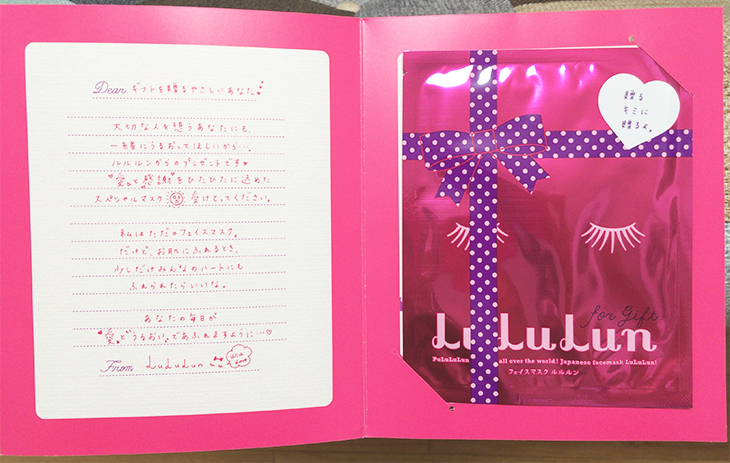 Dear ギフトを贈るやさしいあなた
大切な人を想うあなたにも、
一緒にうるおってほしいから…。
ルルルンからのプレゼントです♥
"愛"と"感謝"をひたひたに込めた
スペシャルマスク 受けとってください。
私はただのフェイスマスク。
だけど、お肌にふれるとき、
少しだけみんなのハートにも
ふれられたらいいな。
あなたの毎日が
"愛"と"うるおい"であふれますように…♡
From LuLuLun
贈る
キミに
贈るよ。
for Gift
LuLuLun
PuLuLuLun all over the world! Japanese facemask LuLuLun!
フェイスマスク ルルルン